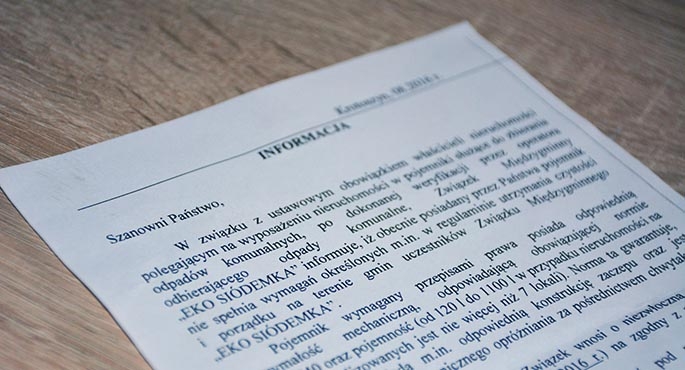 08.2016 r.
INFORMACJA
Szanowni Państwo,
W związku z ustawowym obowiązkiem właścicieli nieruchomości
polegającym na wyposażeniu nieruchomości w pojemniki służące do zbierania
odpadów komunalnych, po dokonanej weryfikacji przez operatora
odbierającego odpady komunalne, Związek Międzygminny
„EKO SIÓDEMKA” informuje, iż obecnie posiadany przez Państwa pojemnik
nie spełnia wymagań określonych m.in. w regulaminie utrzymania czystości
i porządku na terenie gmin uczestników Związku Międzygminnego
„EKO SIÓDEMKA”.
Pojemnik wymagany przepisami prawa posiada odpowiednią
mechaniczną, odpowiadającą obowiązującej normie
40 oraz pojemność (od 120 l do 1100 l w przypadku nieruchomości na
jest nie więcej niż 7 lokali). Norma ta gwarantuje,
m.in. odpowiednią konstrukcję zaczepu oraz jest
opróżniania za pośrednictwem
Związek wnosi o niezwłoczną
2016 r.) na zgodny z
pod